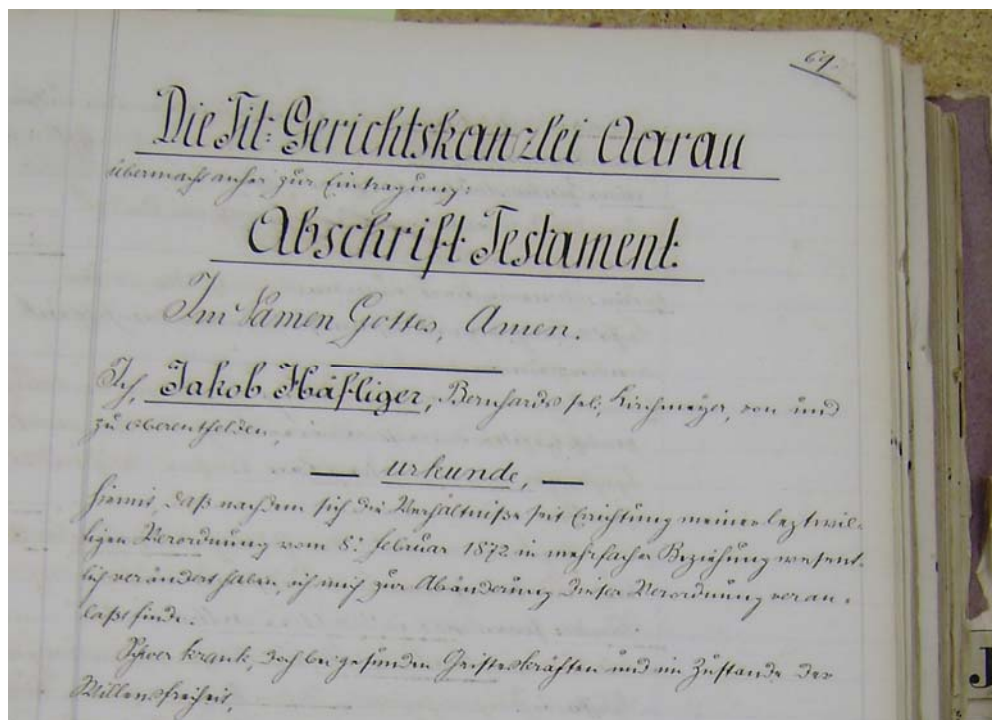 69.
Die Tit: Gerichtskanzlei Aarau
übermacht anher zur Eintragung:
Abschrift Testament.
Im Namen Gottes, Amen.
Ich, Jakob Häfliger, Bernhards sel, Kirchmeyer, von und
zu Oberentfelden,
— urkunde, —
hiemit, daß nachdem sich die Verhältniße seit Errichtung meiner leztwil-
ligen Verordnung vom 8. Februar 1872 in mehrfacher Beziehung wesent-
lich verändert haben, ich mich zur Abänderung dieser Verordnung veran-
laßt finde.
Schwer krank, doch bei gesunden Geisteskräften und im Zustande der
Willensfreiheit,
J